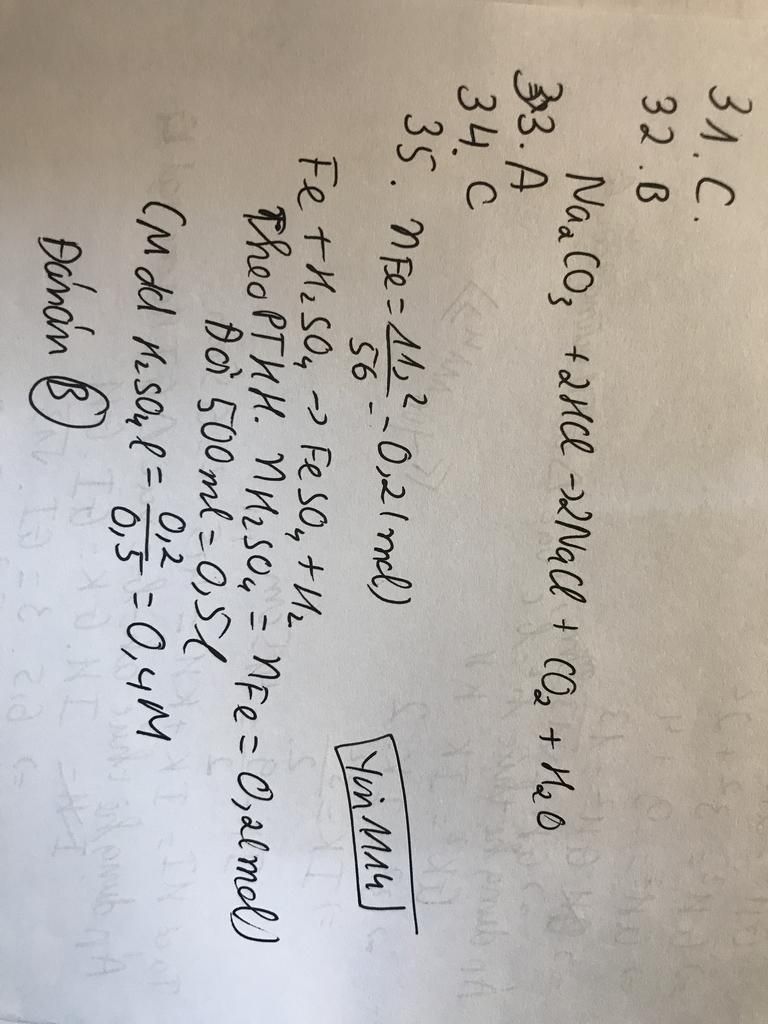 31. C.
32. B
Na₂CO₃ + 2HCl → 2NaCl + CO₂ + H₂O
33. A
34. C
35. nFe = 11,2/56 = 0,2(mol)
Fe + H₂SO₄ → FeSO₄ + H₂
Theo PTHH. nH₂SO₄ = nFe = 0,2(mol)
Đổi 500ml = 0,5l
CM dd H₂SO₄l = 0,2/0,5 = 0,4M
Đáp án B